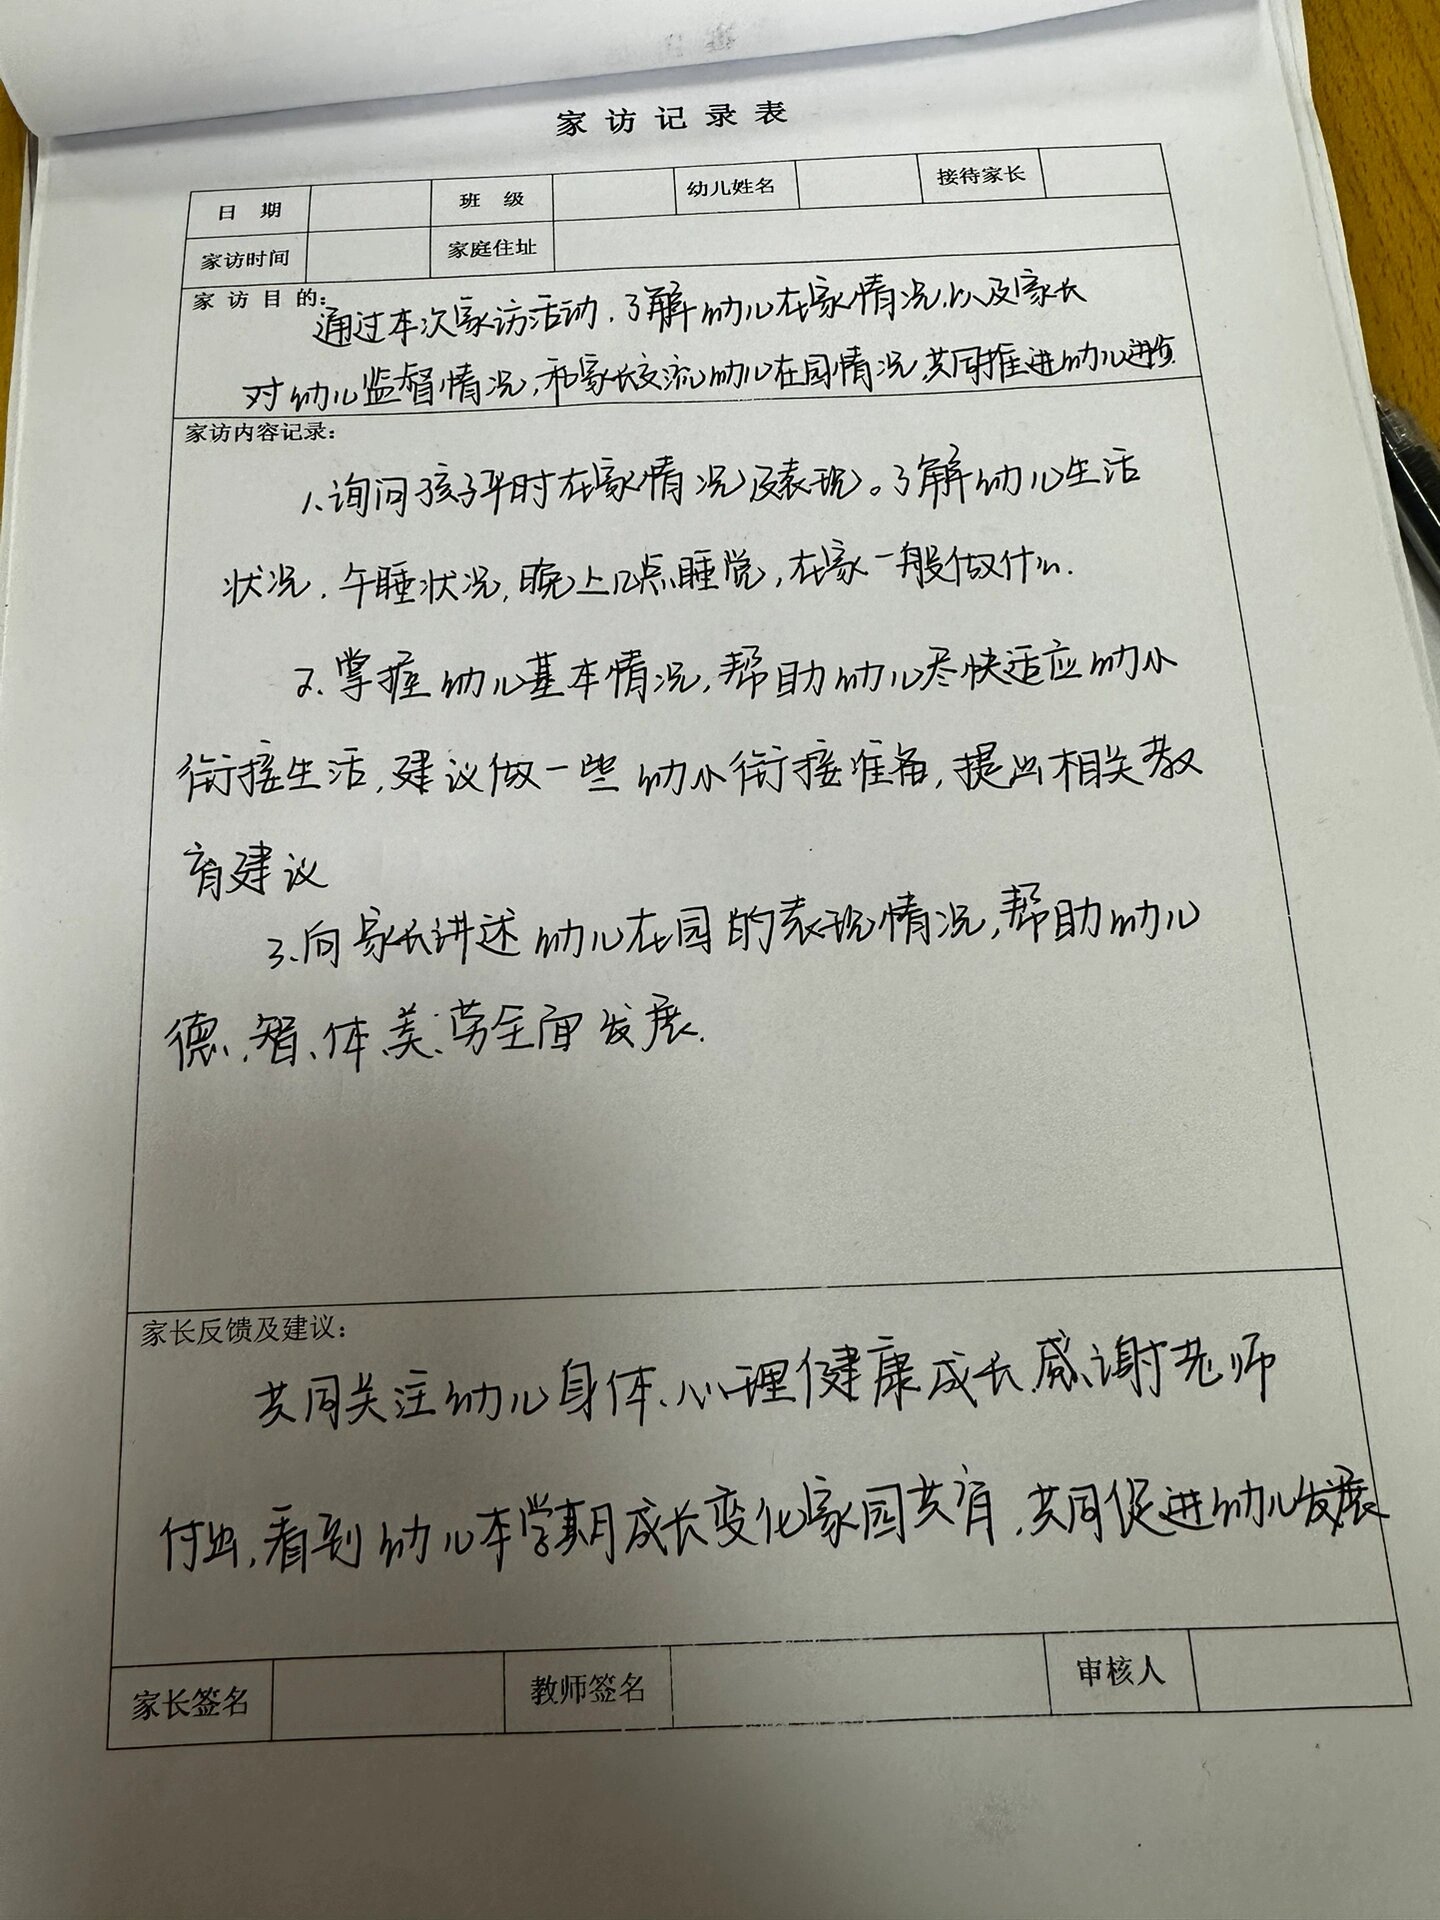 家访记录表
日 期 班 级 幼儿姓名 接待家长
家访时间 家庭住址
家访目的:
通过本次家访活动,了解幼儿在家情况,以及家长
对幼儿监督情况,和家长交流幼儿在园情况,共同推进幼儿进步.
家访内容记录:
1.询问孩子平时在家情况及表现。了解幼儿生活
状况.午睡状况,晚上几点睡觉,在家一般做什么.
2.掌握幼儿基本情况,帮助幼儿尽快适应幼小
衔接生活,建议做一些幼小衔接准备,提出相关教
育建议
3.向家长讲述幼儿在园的表现情况,帮助幼儿
德、智、体、美、劳全面发展.
家长反馈及建议:
共同关注幼儿身体、心理健康成长.感谢老师
付出,看到幼儿本学期成长变化家园共育,共同促进幼儿发展
家长签名 教师签名 审核人